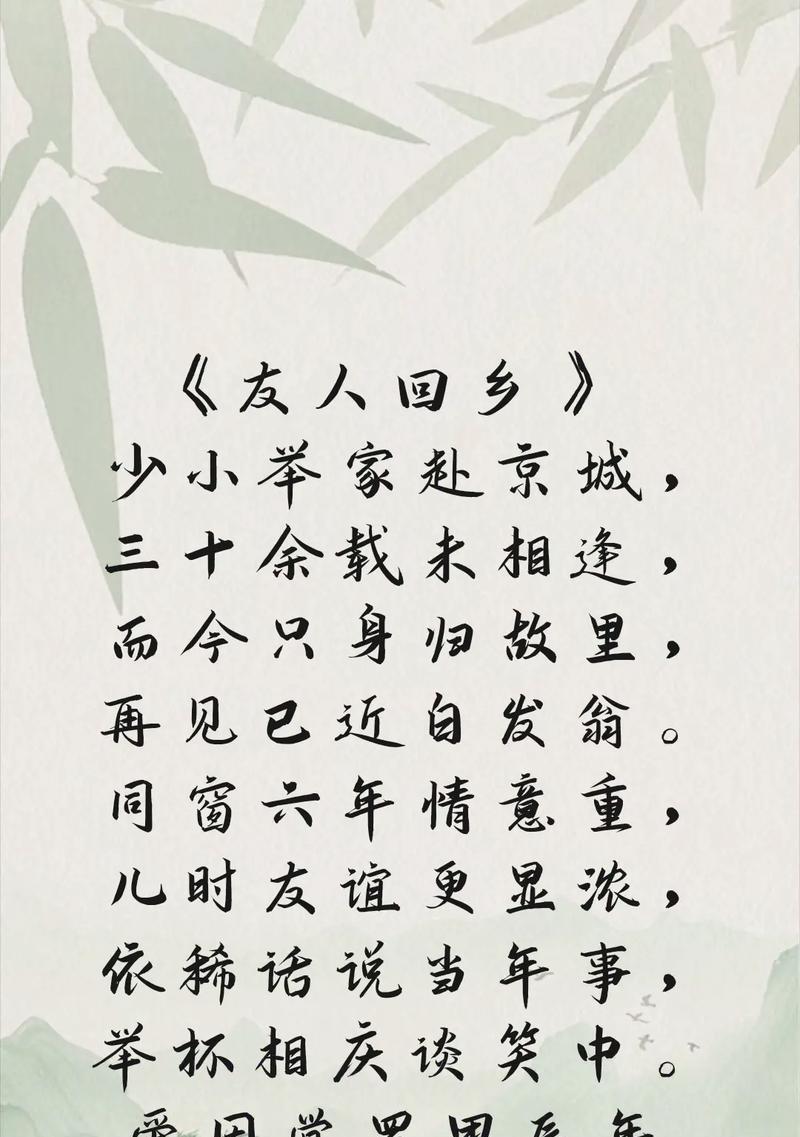 《友人回乡》
少小举家赴京城，
三十余载未相逢，
而今只身归故里，
再见已近白发翁。
同窗六年情意重，
儿时友谊更显浓，
依稀话说当年事，
举杯相庆谈笑中。